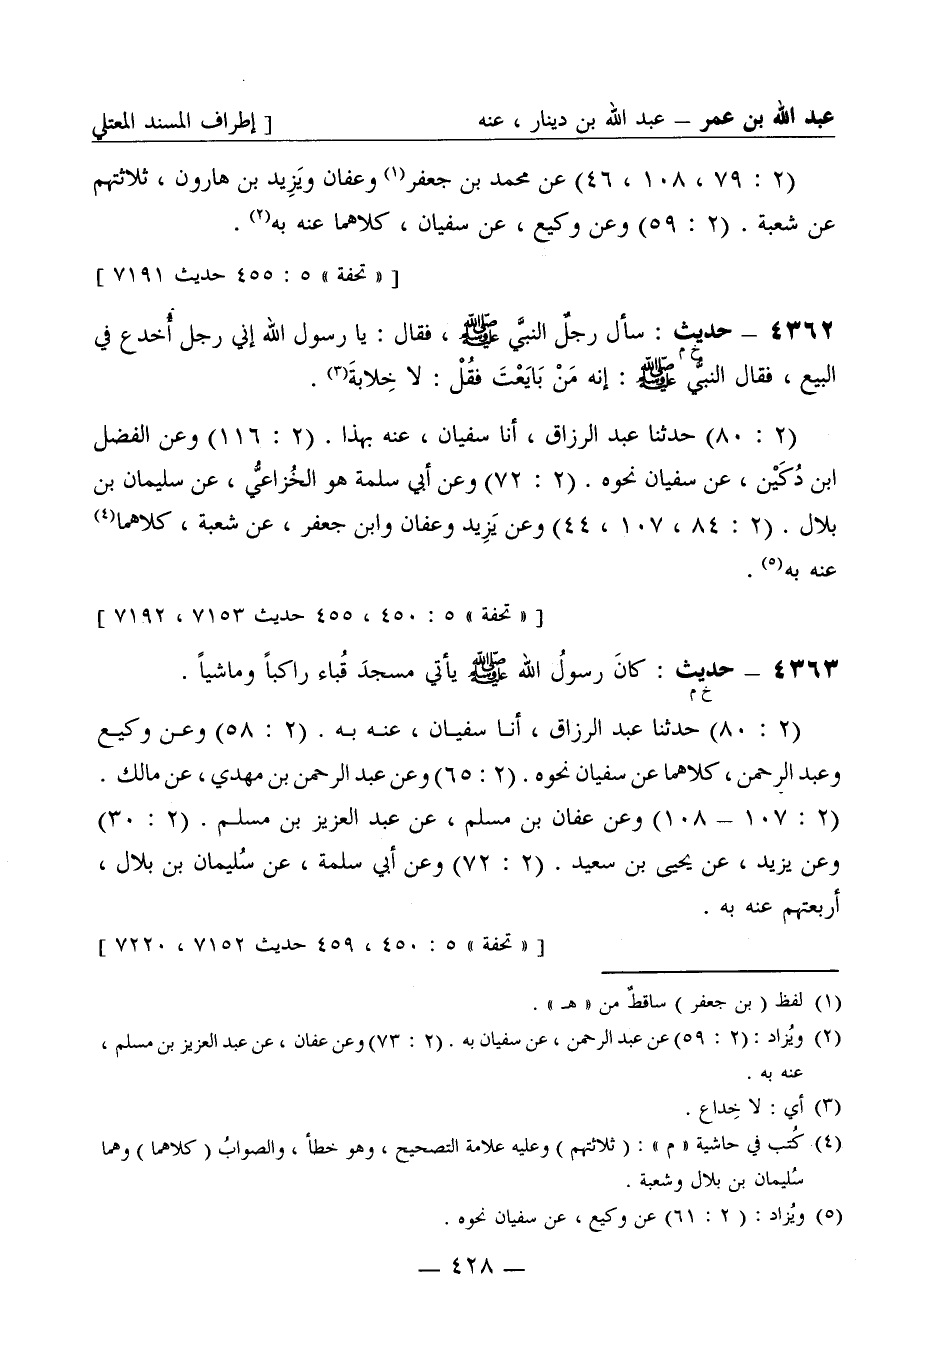 عبد الله بن عمر – عبد الله بن دينار ، عنه [ إطراف المسند المعتلي
(٢ : ٧٩ ، ١٠٨ ، ٤٦) عن محمد بن جعفر(١) وعفان ويَزِيد بن هارون ، ثلاثتهم
عن شعبة . (٢ : ٥٩) وعن وكيع ، عن سفيان ، كلاهما عنه به(٢) .
[ « تحفة » ٥ : ٤٥٥ حديث ٧١٩١ ]
٤٣٦٢ – حديث : سأل رجلٌ النبيَّ ﷺ ، فقال : يا رسول الله إني رجل أُخدع في
خ م
البيع ، فقال النبيُّ ﷺ : إنه مَنْ بَايَعْتَ فقُلْ : لا خِلابةَ(٣) .
(٢ : ٨٠) حدثنا عبد الرزاق ، أنا سفيان ، عنه بهذا . (٢ : ١١٦) وعن الفضل
ابن دُكَيْن ، عن سفيان نحوه . (٢ : ٧٢) وعن أبي سلمة هو الخُزاعيُّ ، عن سليمان بن
بلال . (٢ : ٨٤ ، ١٠٧ ، ٤٤) وعن يَزِيد وعفان وابن جعفر ، عن شعبة ، كلاهما(٤)
عنه به(٥) .
[ « تحفة » ٥ : ٤٥٠ ، ٤٥٥ حديث ٧١٥٣ ، ٧١٩٢ ]
٤٣٦٣ – حديث : كانَ رسولُ الله ﷺ يأتي مسجدَ قُباء راكباً وماشياً .
خ م
(٢ : ٨٠) حدثنا عبد الرزاق ، أنا سفيان ، عنه به . (٢ : ٥٨) وعن وكيع
وعبد الرحمن ، كلاهما عن سفيان نحوه . (٢ : ٦٥) وعن عبد الرحمن بن مهدي ، عن مالك .
(٢ : ١٠٧ – ١٠٨) وعن عفان بن مسلم ، عن عبد العزيز بن مسلم . (٢ : ٣٠)
وعن يزيد ، عن يحيى بن سعيد . (٢ : ٧٢) وعن أبي سلمة ، عن سُليمان بن بلال ،
أربعتهم عنه به .
[ « تحفة » ٥ : ٤٥٠ ، ٤٥٩ حديث ٧١٥٢ ، ٧٢٢٠ ]
(١) لفظ ( بن جعفر ) ساقطٌ من « هـ » .
(٢) ويُزاد : (٢ : ٥٩) عن عبد الرحمن ، عن سفيان به . (٢ : ٧٣) وعن عفان ، عن عبد العزيز بن مسلم ،
عنه به .
(٣) أي : لا خِداع .
(٤) كُتب في حاشية « م » : ( ثلاثتهم ) وعليه علامة التصحيح ، وهو خطأ ، والصوابُ ( كلاهما ) وهما
سُليمان بن بلال وشعبة .
(٥) ويُزاد : ( ٢ : ٦١) عن وكيع ، عن سفيان نحوه .
– ٤٢٨ –